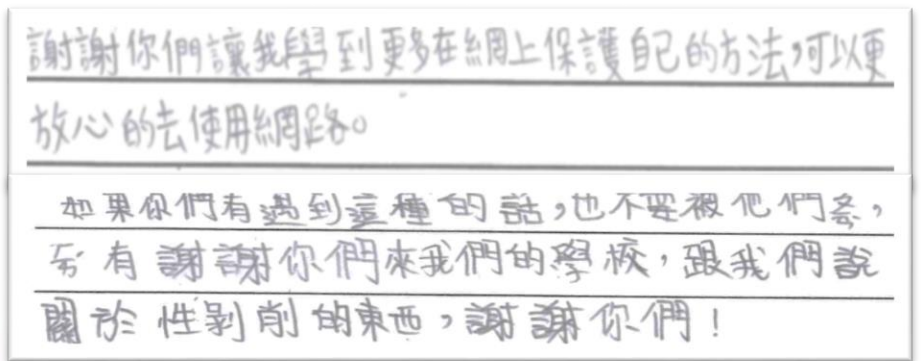 謝謝你們讓我學到更多在網上保護自己的方法,可以更
放心的去使用網路。
如果你們有遇到這種的話,也不要被他們
有謝謝你們來我們的學校,跟我們說
關於性剝削的東西,謝謝你們!